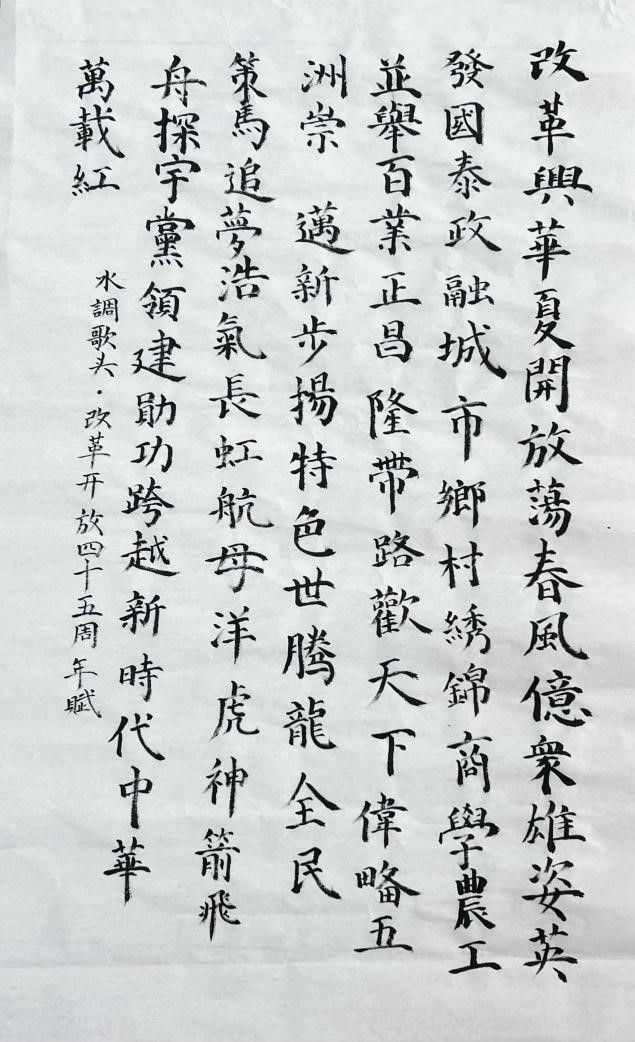 改革興華夏開放蕩春風億衆雄姿英
發國泰政融城市鄉村綉錦商學農工
並舉百業正昌隆帶路歡天下偉略五
洲崇 邁新步揚特色世騰龍全民
策馬追夢浩氣長虹航母洋虎神箭飛
舟探宇黨領建勛功跨越新時代中華
萬載紅
水調歌头·改革开放四十五周年賦